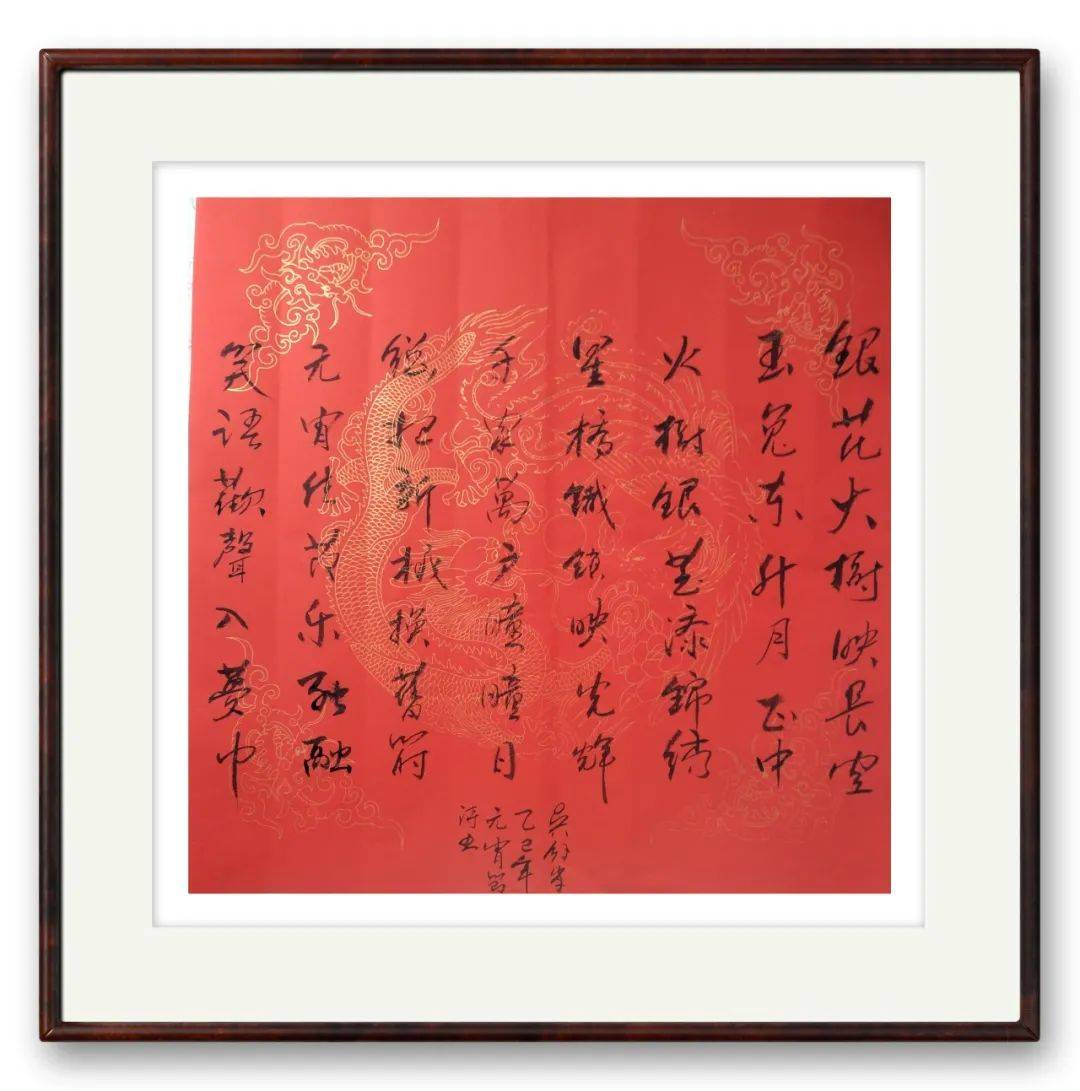 銀花火樹映長空
玉兔东升月正中
火樹銀花添錦绣
星橋鐵鎖映光輝
千家萬户曈曈日
總把新桃換舊符
元宵佳节乐融融
笑语歡聲入夢中
吳
乙巳年
元宵節
诗书